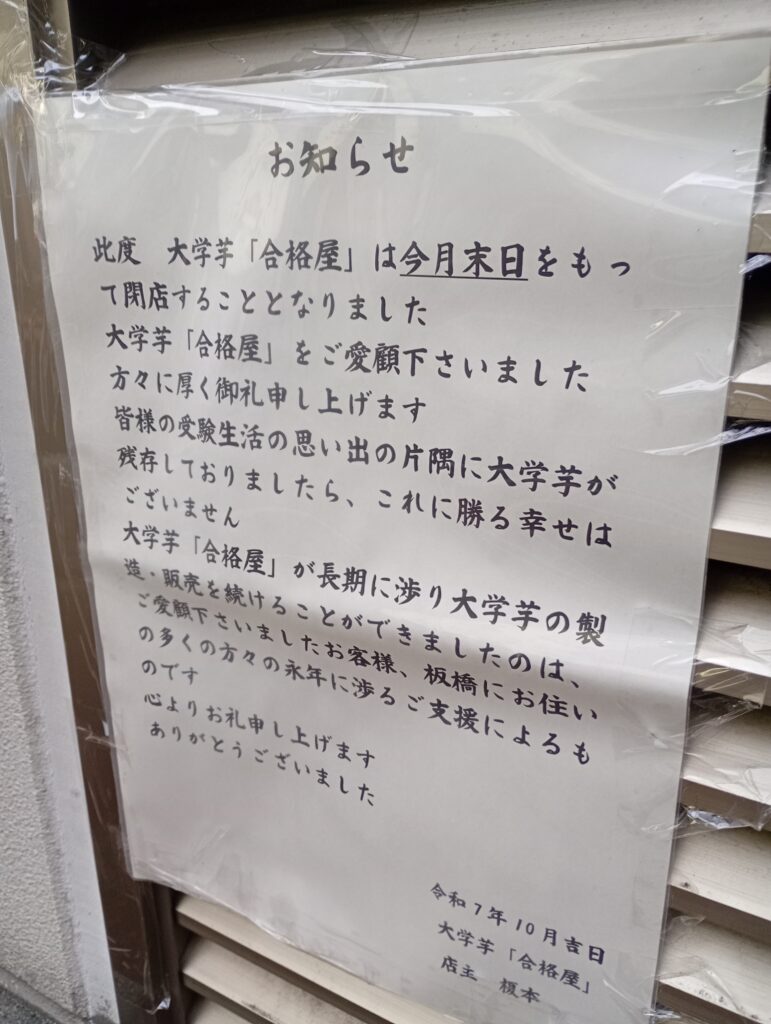 お知らせ
此度　大学芋「合格屋」は今月末日をもっ
て閉店することとなりました
大学芋「合格屋」をご愛顧下さいました
方々に厚く御礼申し上げます
皆様の受験生活の思い出の片隅に大学芋が
残存しておりましたら、これに勝る幸せは
ございません
大学芋「合格屋」が長期に渉り大学芋の製
造・販売を続けることができましたのは、
ご愛顧下さいましたお客様、板橋にお住い
の多くの方々の永年に渉るご支援によるも
のです
心よりお礼申し上げます
ありがとうございました
令和7年10月吉日
大学芋「合格屋」
店主　榎本